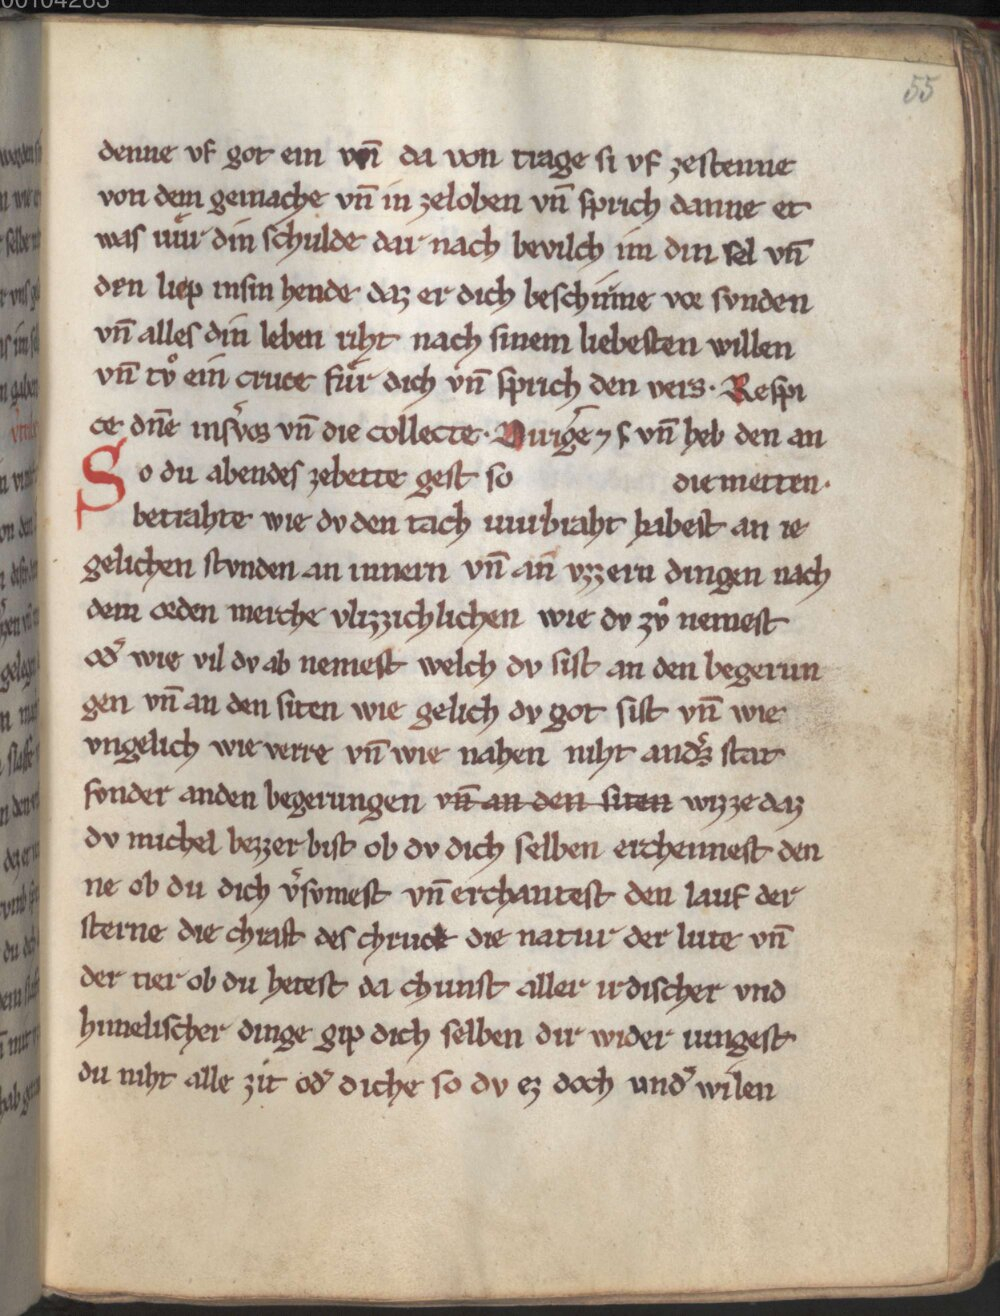 55
denne vf got ein vn̄ da von trage si vf zestenne
von dem gemache vn̄ in zeloben vn̄ sprich danne et
was uúr din schulde dar nach bevilch im din sel vn̄
den liep insin hende daz er dich beschirme vor svnden
vn̄ alles din leben riht nach sinem liebesten willen
vn̄ tvͦ ein cruce fúr dich vn̄ sprich den vers · Respi
ce dn̄e in svos vn̄ die collecte · Dirige ⁊ vn̄ heb den an
So du abendes zebette gest so die metten ·
betrahte wie dv den tach uurbraht habest an ie
gelichen stvnden an innern vn̄ an vzzern dingen nach
dem orden merche vlizzichlichen wie dv zvͦ nemest
od͛ wie vil dv ab nemest welch dv sist an den begerun
gen vn̄ an den siten wie gelich dv got sist vn̄ wie
vngelich wie verre vn̄ wie nahen niht and͛s stat
svnder anden begerungen vn̄ an den siten wizze daz
dv michel bezzer bist ob dv dich selben erchennest den
ne ob du dich v͛svmest vn̄ erchantest den lauf der
sterne die chraft des chrutes die natur der lute vn̄
der tier ob du hetest da chunst aller irdischer vnd
himelischer dinge gip dich selben dir wider mugest
du niht alle zit od͛ diche so dv ez doch und͛ wilen